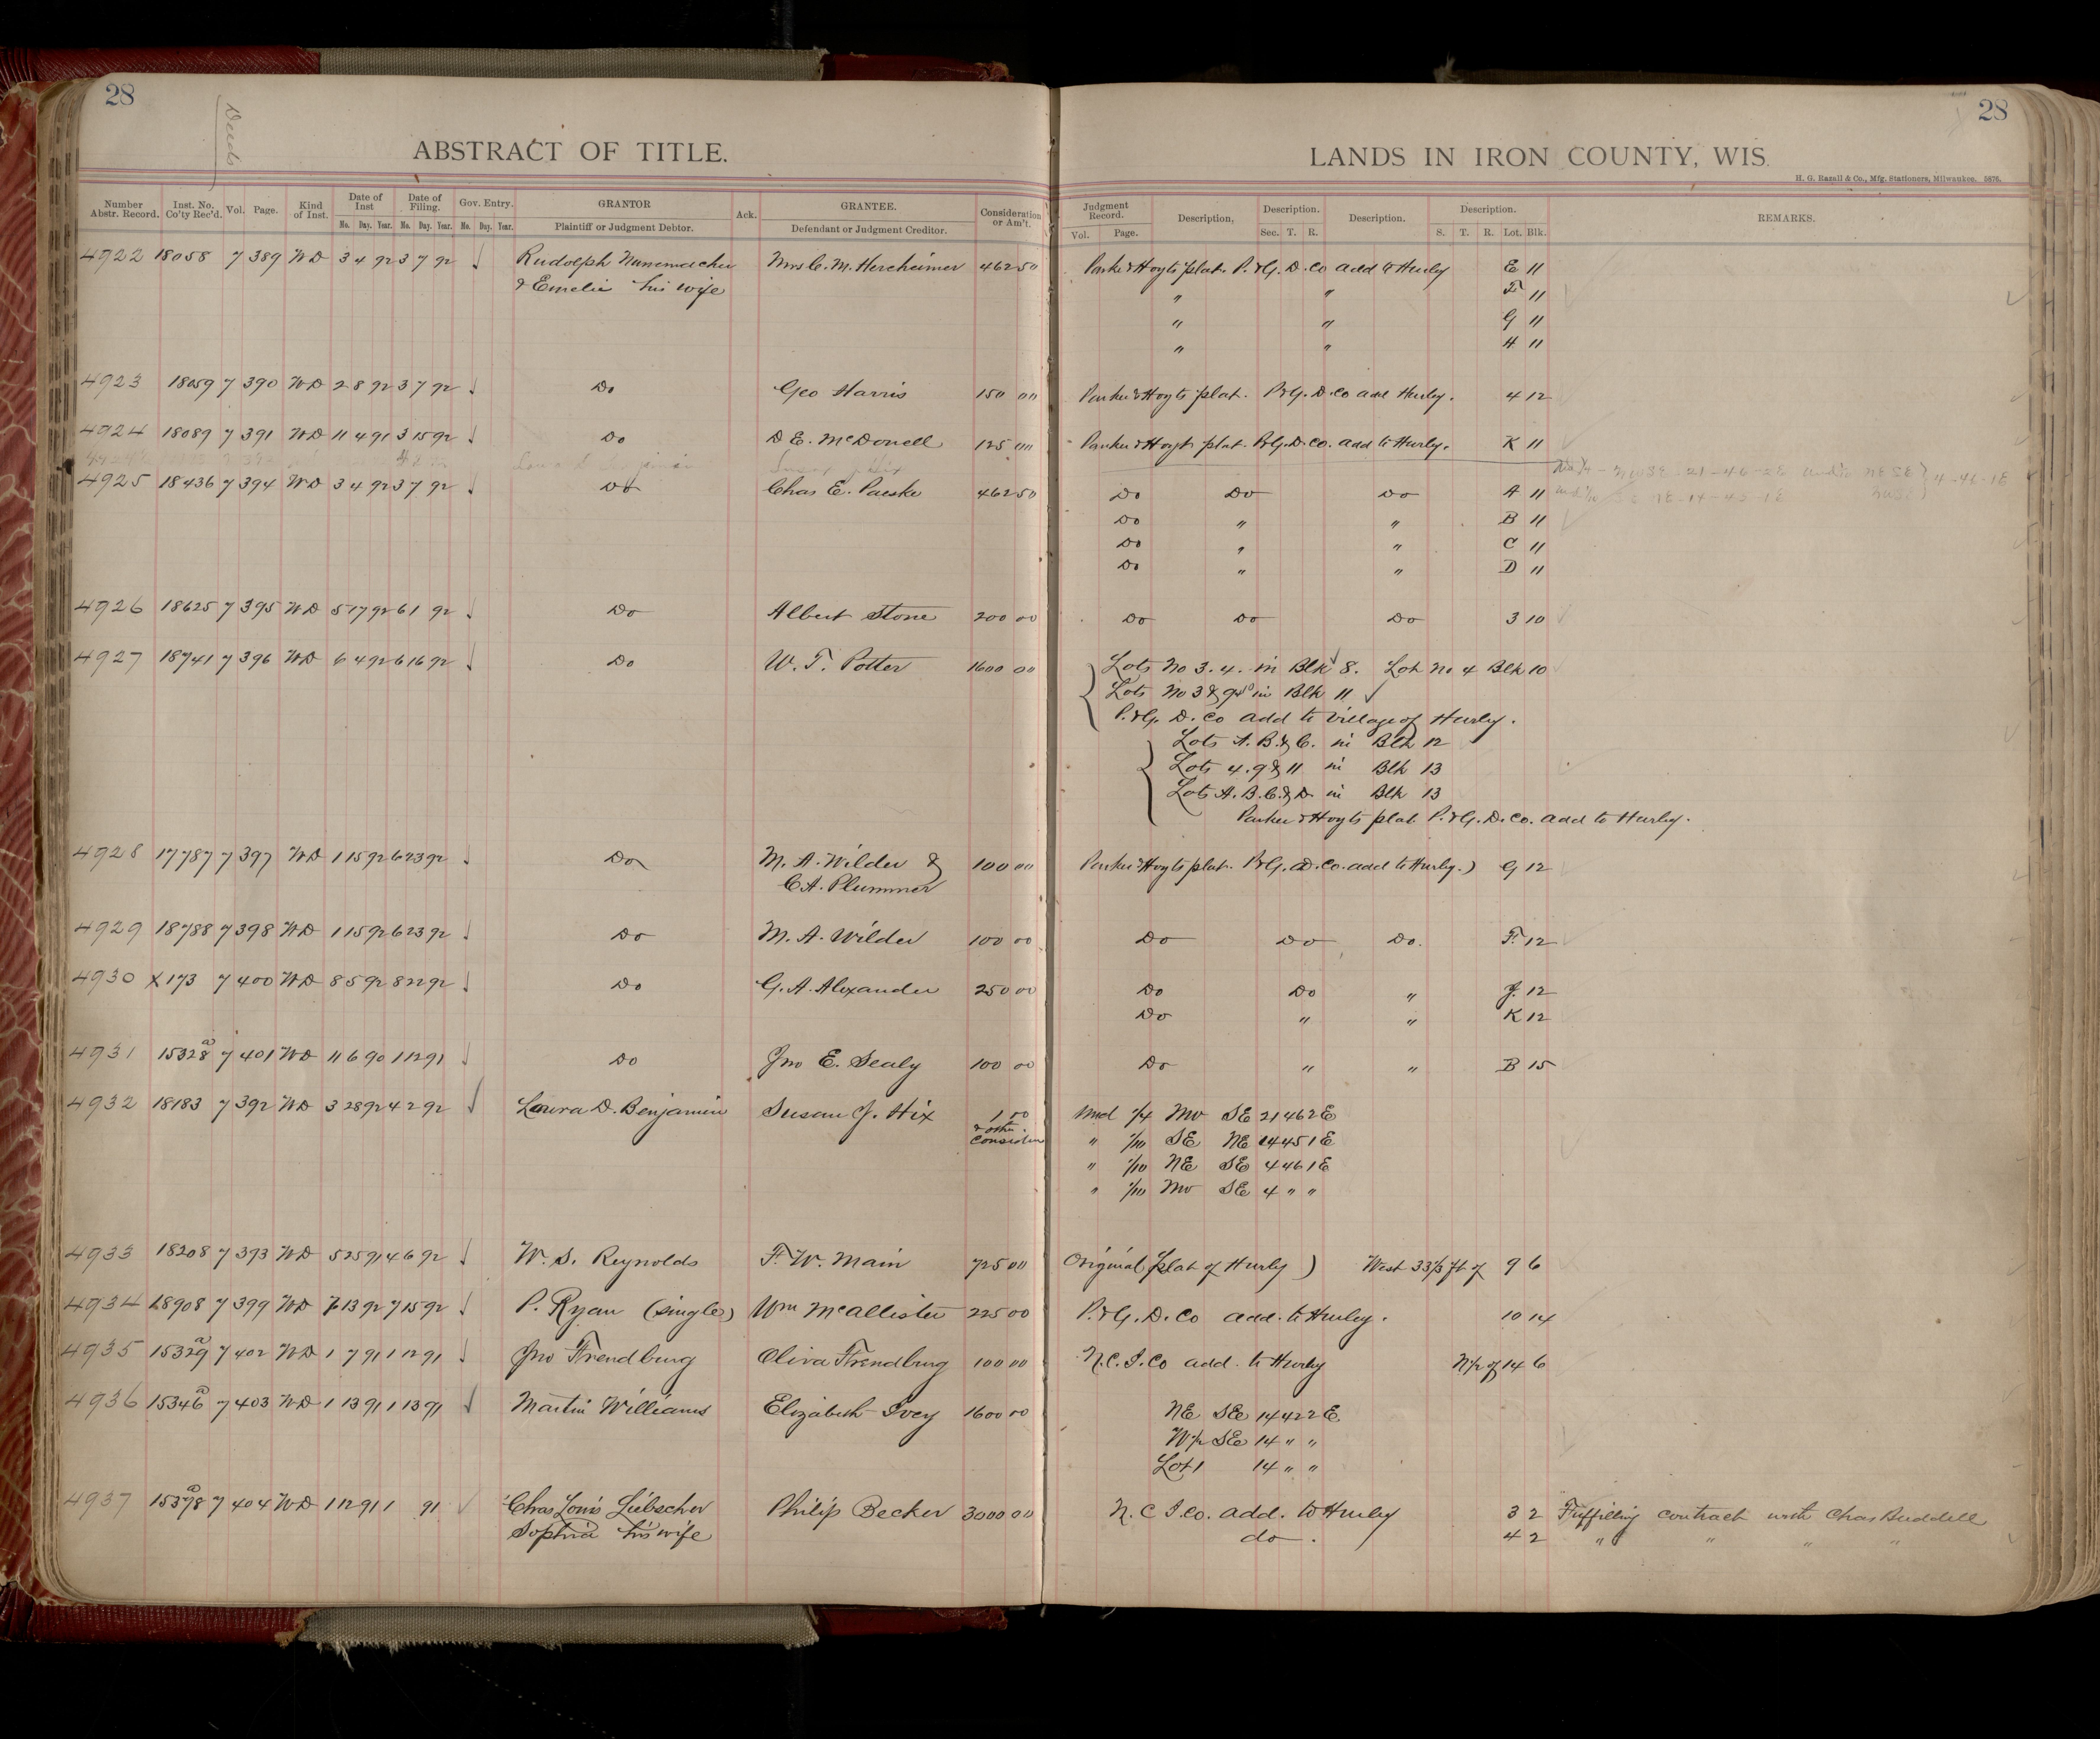 28
Deeds
ABSTRACT OF TITLE.
Number Abstr. Record. Inst. No. Co'ty Rec'd. Vol. Page. Kind of Inst. Date of Inst Date of Filing. Gov. Entry. GRANTOR Ack. GRANTEE. Consideration or Am't.
No. Day. Year. No. Day. Year. No. Day. Year. Plaintiff or Judgment Debtor. Defendant or Judgment Creditor.
4922 18058 7 389 WD 3 4 92 3 7 92 ✓ Rudolph Nunnemacher Mrs C. M. Hercheimer 462 50
& Emelie his wife
4923 18059 7 390 WD 2 8 92 3 7 92 ✓ Do Geo Harris 150 00
4924 18089 7 391 WD 11 4 91 3 15 92 ✓ Do D E. McDonell 125 00
4925 18436 7 394 WD 3 4 92 3 7 92 ✓ Do Chas E. Paeske 462 50
4926 18625 7 395 WD 5 17 92 6 1 92 ✓ Do Albert Stone 200 00
4927 18741 7 396 WD 6 4 92 6 16 92 ✓ Do W. T. Potter 1600 00
4928 17787 7 397 WD 1 15 92 6 23 92 ✓ Do M. A. Wilder & 100 00
C. A. Plummer
4929 18788 7 398 WD 1 15 92 6 23 92 ✓ Do M. A. Wilder 100 00
4930 X 173 7 400 WD 8 5 92 8 22 92 ✓ Do G. A. Alexander 250 00
4931 15328a 7 401 WD 11 6 90 1 12 91 ✓ Do Jno E. Sealy 100 00
4932 18183 7 392 WD 3 28 92 4 2 92 ✓ Laura D. Benjamin Susan J. Hix 1 00
& other
consider
4933 18208 7 393 WD 5 25 91 4 6 92 ✓ W. S. Reynolds F. W. Main 725 00
4934 18908 7 399 WD 7 13 92 7 15 92 ✓ P. Ryan (single) Wm McAllister 225 00
4935 15329a 7 402 WD 1 7 91 1 12 91 ✓ Jno Frendburg Oliva Frendburg 100 00
4936 15346a 7 403 WD 1 13 91 1 13 91 ✓ Martin Williams Elizabeth Ivey 1600 00
4937 15378a 7 404 WD 1 12 91 1 91 ✓ Chas Louis Liebscher Philip Becker 3000 00
Sophia his wife
28
LANDS IN IRON COUNTY, WIS.
H. G. Razall & Co., Mfg. Stationers, Milwaukee. 5876.
Judgment Record. Description, Description. Description. Description. REMARKS.
Vol. Page. Sec. T. R. S. T. R. Lot. Blk.
Parker & Hoyts plat. P. & G. D. Co add to Hurley E 11
" " F 11
" " G 11
" " H 11
Parker & Hoyts plat. P&G. D. Co add Hurley. 4 12
Parker & Hoyts plat. P&G. D. Co. add to Hurley. K 11
Do Do Do A 11
Do " " B 11
Do " " C 11
Do " " D 11
Do Do Do 3 10
Lots No 3. 4. in Blk 8. Lot No 4 Blk 10
Lots No 3 & 9 in Blk 11
P. & G. D. Co add to Village of Hurley.
Lots A. B. & C. in Blk 12
Lots 4. 9 & 11 in Blk 13
Lots A. B. C. & D. in Blk 13
Parker & Hoyts plat P. & G. D. Co. add to Hurley.
Parker & Hoyts plat. P&G. D. Co. add to Hurley.) G 12
Do Do Do. F. 12
Do Do " J. 12
Do " " K 12
Do " " B 15
Und 1/4 NW SE 21 46 2 E
" 1/10 SE NE 14 45 1 E
" 1/10 NE SE 4 46 1 E
" 1/10 NW SE 4 " "
Original plat of Hurley ) West 33 1/3 ft of 9 6
P. & G. D. Co add. to Hurley. 10 14
N. C. I. Co add. to Hurley N 1/2 of 14 6
NE SE 14 42 2 E
W 1/2 SE 14 " "
Lot 1 14 " "
N. C I. Co. add. to Hurley 3 2 Fulfilling contract with Chas Buddell
do. 4 2 " " " "